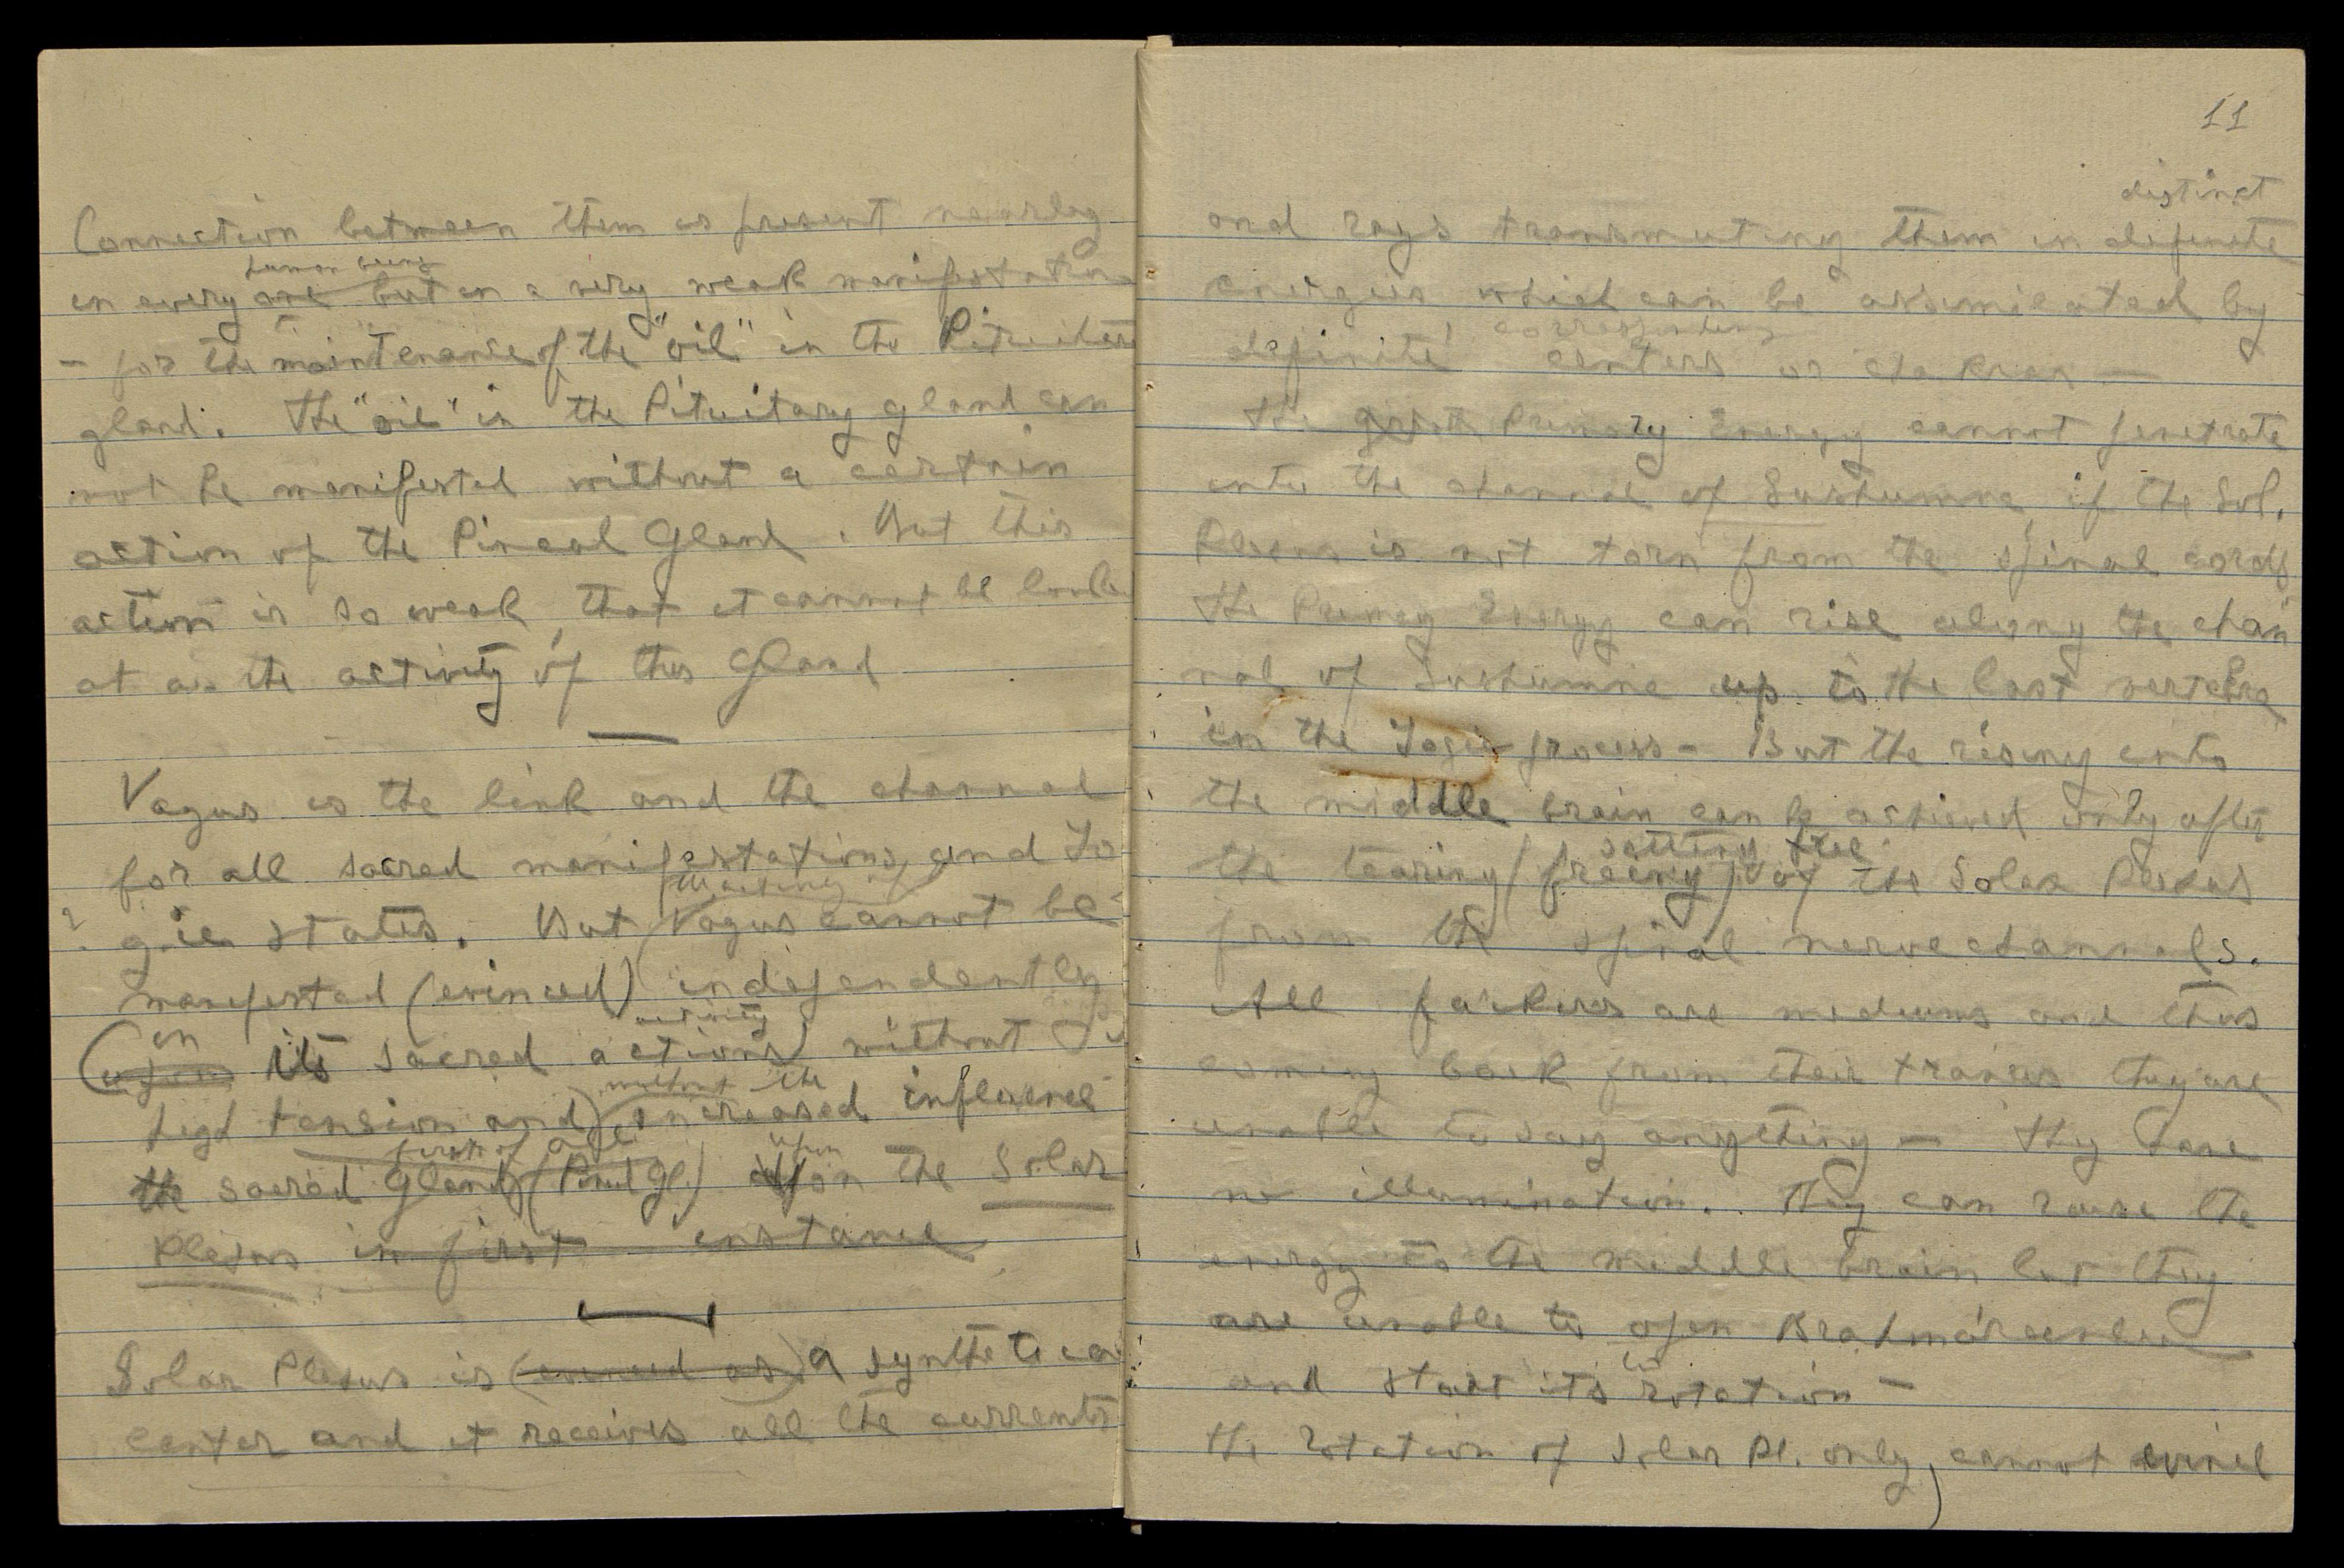 Connection between them is present nearly
human being
in every one but in a very weak manifestation
- for the maintenance of the "oil" in the Pituitary
gland. The "oil" in the Pituitary gland can
not be manifested without a certain
action of the Pineal Gland. But this
action is so weak, that it cannot be look
at as the activity of this Gland
Vagus is the link and the channel
for all sacred manifestations, and Yo
gic states. But Vagus cannot be
manifested (evinced) independently
activity
(upon in its sacred actions) without
high tension and) without the increased influence
first of all
the sacred Gland (Pineal Gl.) upon the Solar
Plexus in first instance
Solar Plexus is (evinced as) a synthetical
center and it receives all the currents
11
distinct
and rays transmuting them in definite
energies which can be assimilated by
corresponding
definite centers or chakras —
The Primary Energy cannot penetrate
into the channel of Sushumna, if the Sol.
Plexus is not torn from the spinal cords
The Primary Energy can rise along the chan
nel of Sushumna up to the last vertebra
in the Yogic process - But the rising into
the middle brain can be achieved only after
setting free
the tearing (freeing) of the Solar Plexus
from the spinal nerve channels.
All fakirs are mediums and thus
coming back from their trances they are
unable to say anything — They have
no illumination. They can raise the
energy to the middle brain but they
are unable to open Brahmarandra
and start its rotation —
The rotation of Solar Pl. only, cannot evince